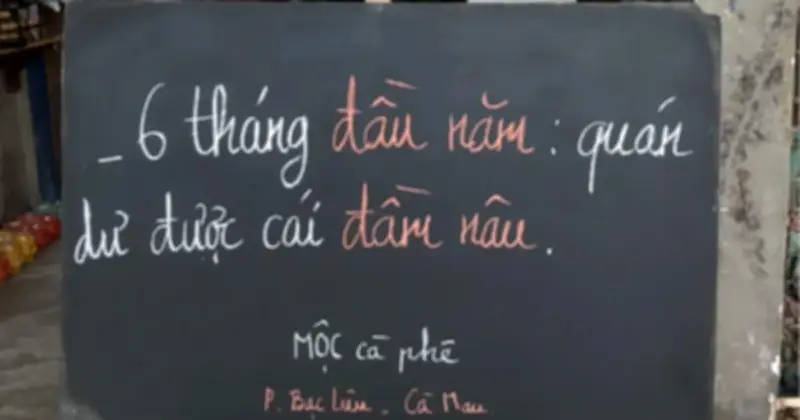 _ 6 tháng đầu năm : quán
dư được cái đầm nâu.
MỘC cà phê
P. Bạc Liêu. Cà Mau